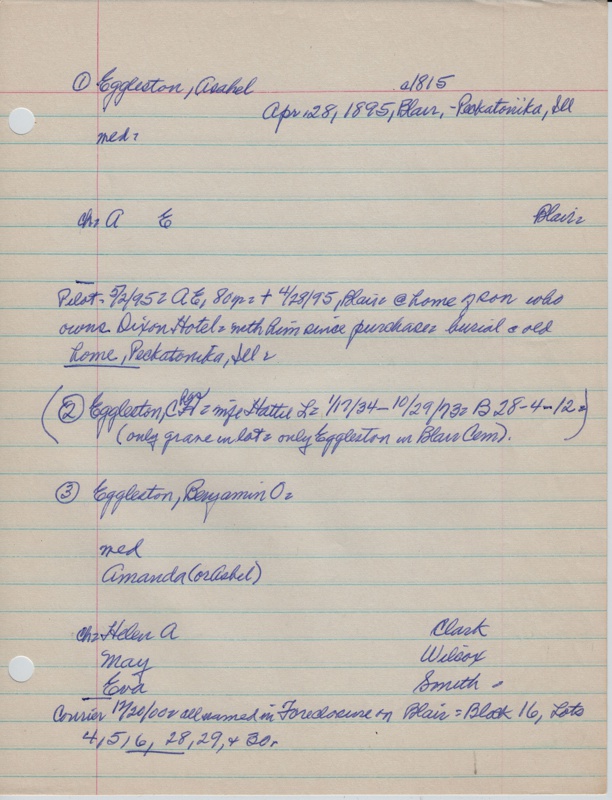 ① Eggleston, Asahel a1815
Apr. 28, 1895, Blair, - Peckatonika, Ill
med=
ch= A E Blair=
Pilot- 5/2/95= A E, 80 yr= + 4/28/95, Blair= @ home of son who
owns Dixon Hotel= with him since purchase= burial @ old
home, Peckatonika, Ill=
(② Eggleston, = wife Hattie L= 1/17/34 - 10/29/73= B 28-4-12=
(only grave in lot= only Eggleston in Blair Cem).)
③ Eggleston, Benjamin O=
med
Amanda (or Ashel)
ch= Helen A Clark
May Wilcox
Eva Smith =
Courier 12/20/00= all named in Foreclosure on Blair= Block 16, Lots
4, 5, 6, 28, 29, + 30.